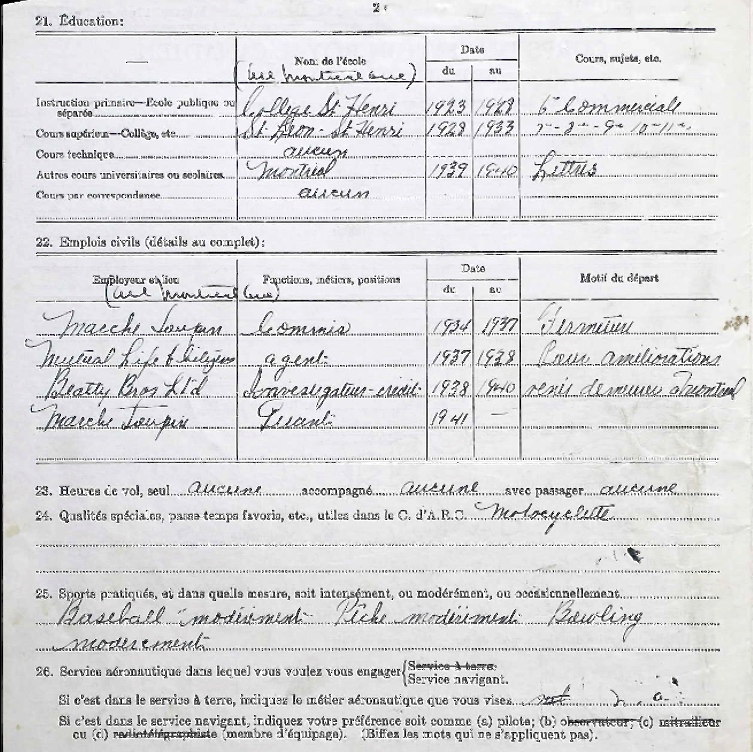 2
21. Éducation:
Nom de l'école
Date
du
au
Cours, sujets, etc.
Instruction primaire—Ecole publique ou séparée
College St Henri
1923
1928
6e Commerciale
Cours supérieur—Collège, etc.
St. Leon - St Henri
1928
1933
7e - 8e - 9e 10 - 11e
Cours technique
aucun
Autres cours universitaires ou scolaires
Montreal
1939
1940
Lettres
Cours par correspondance
aucun
22. Emplois civils (détails au complet):
Employeur et lieu
Fonctions, métiers, positions
Date
du
au
Motif du départ
Commis
1934
1937
Mutual Life & Citizens
agent
1937
1938
ameliorations
Beatty Bros Ltd
Investigateur-credit
1938
1940
venir demeurer a Montreal
Marche
Gerant
1941
—
23. Heures de vol, seul aucune accompagné aucune avec passager aucune
24. Qualités spéciales, passe temps favoris, etc., utiles dans le C. d'A.R.C. Motocyclette
25. Sports pratiqués, et dans quelle mesure, soit intensément, ou modérément, ou occasionnellement.
Baseball modérément Pêche modérément Bowling
modérément
26. Service aéronautique dans lequel vous voulez vous engager { Service à terre.
Service navigant.
Si c'est dans le service à terre, indiquez le métier aéronautique que vous visez
Si c'est dans le service navigant, indiquez votre préférence soit comme (a) pilote; (b) observateur; (c) mitrailleur
ou (d) radiotélégraphiste (membre d'équipage). (Biffez les mots qui ne s'appliquent pas).